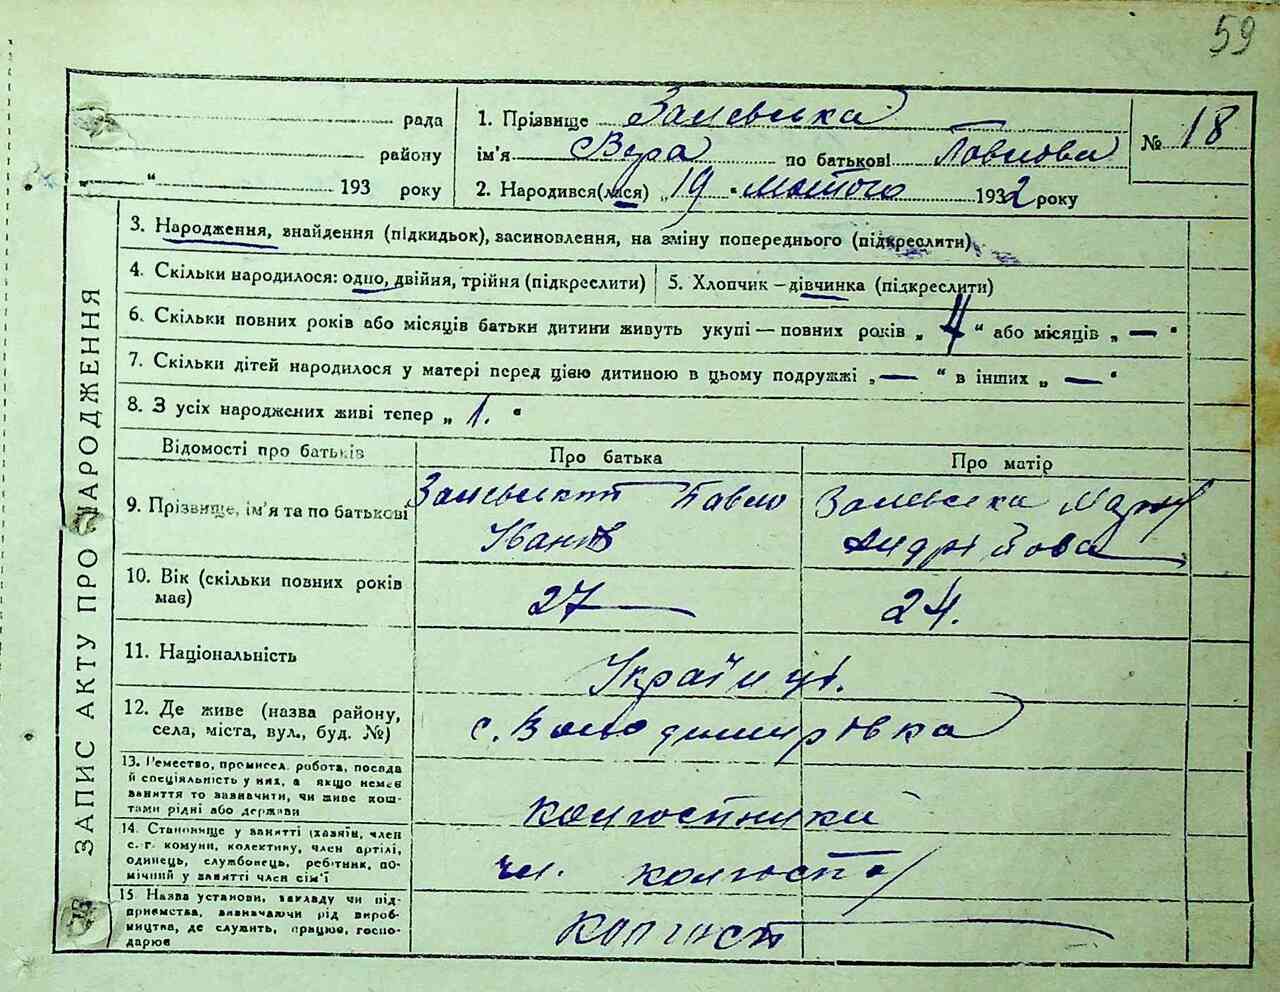 59
рада
району
„ “ 193 року
1. Прізвище Залевська
ім'я Вера по батькові Павлова
2. Народився(лася) „19“ Лютого 1932 року
№ 18
ЗАПИС АКТУ ПРО НАРОДЖЕННЯ
3. Народження, знайдення (підкидьок), засиновлення, на зміну попереднього (підкреслити)
4. Скільки народилося: одно, двійня, трійня (підкреслити) 5. Хлопчик – дівчинка (підкреслити)
6. Скільки повних років або місяців батьки дитини живуть укупі — повних років „4“ або місяців „—“
7. Скільки дітей народилося у матері перед цією дитиною в цьому подружжі „—“ в інших „—“
8. З усіх народжених живі тепер „1.“
Відомості про батьків Про батька Про матір
9. Прізвище, ім'я та по батькові
Залевський Павло
Іванів
Залевська
Андрійова
10. Вік (скільки повних років
має)
27 24.
11. Національність Українці.
12. Де живе (назва району,
села, міста, вул., буд. №)
с. Володимирівка
13. Ремество, промисел, робота, посада
й спеціяльність у них, а якщо немає
заняття то зазначити, чи живе кош-
тами рідні або держави
колгостники
14. Становище у занятті (хазяїн, член
с. г. комуни, колективу, член артілі,
одинець, службовець, робітник, по-
мічний у занятті член сім'ї
чл. колгоспа
15. Назва установи, закладу чи під-
приємства, визначаючи рід вироб-
ництва, де служить, працює, госпо-
дарює
Колгосп